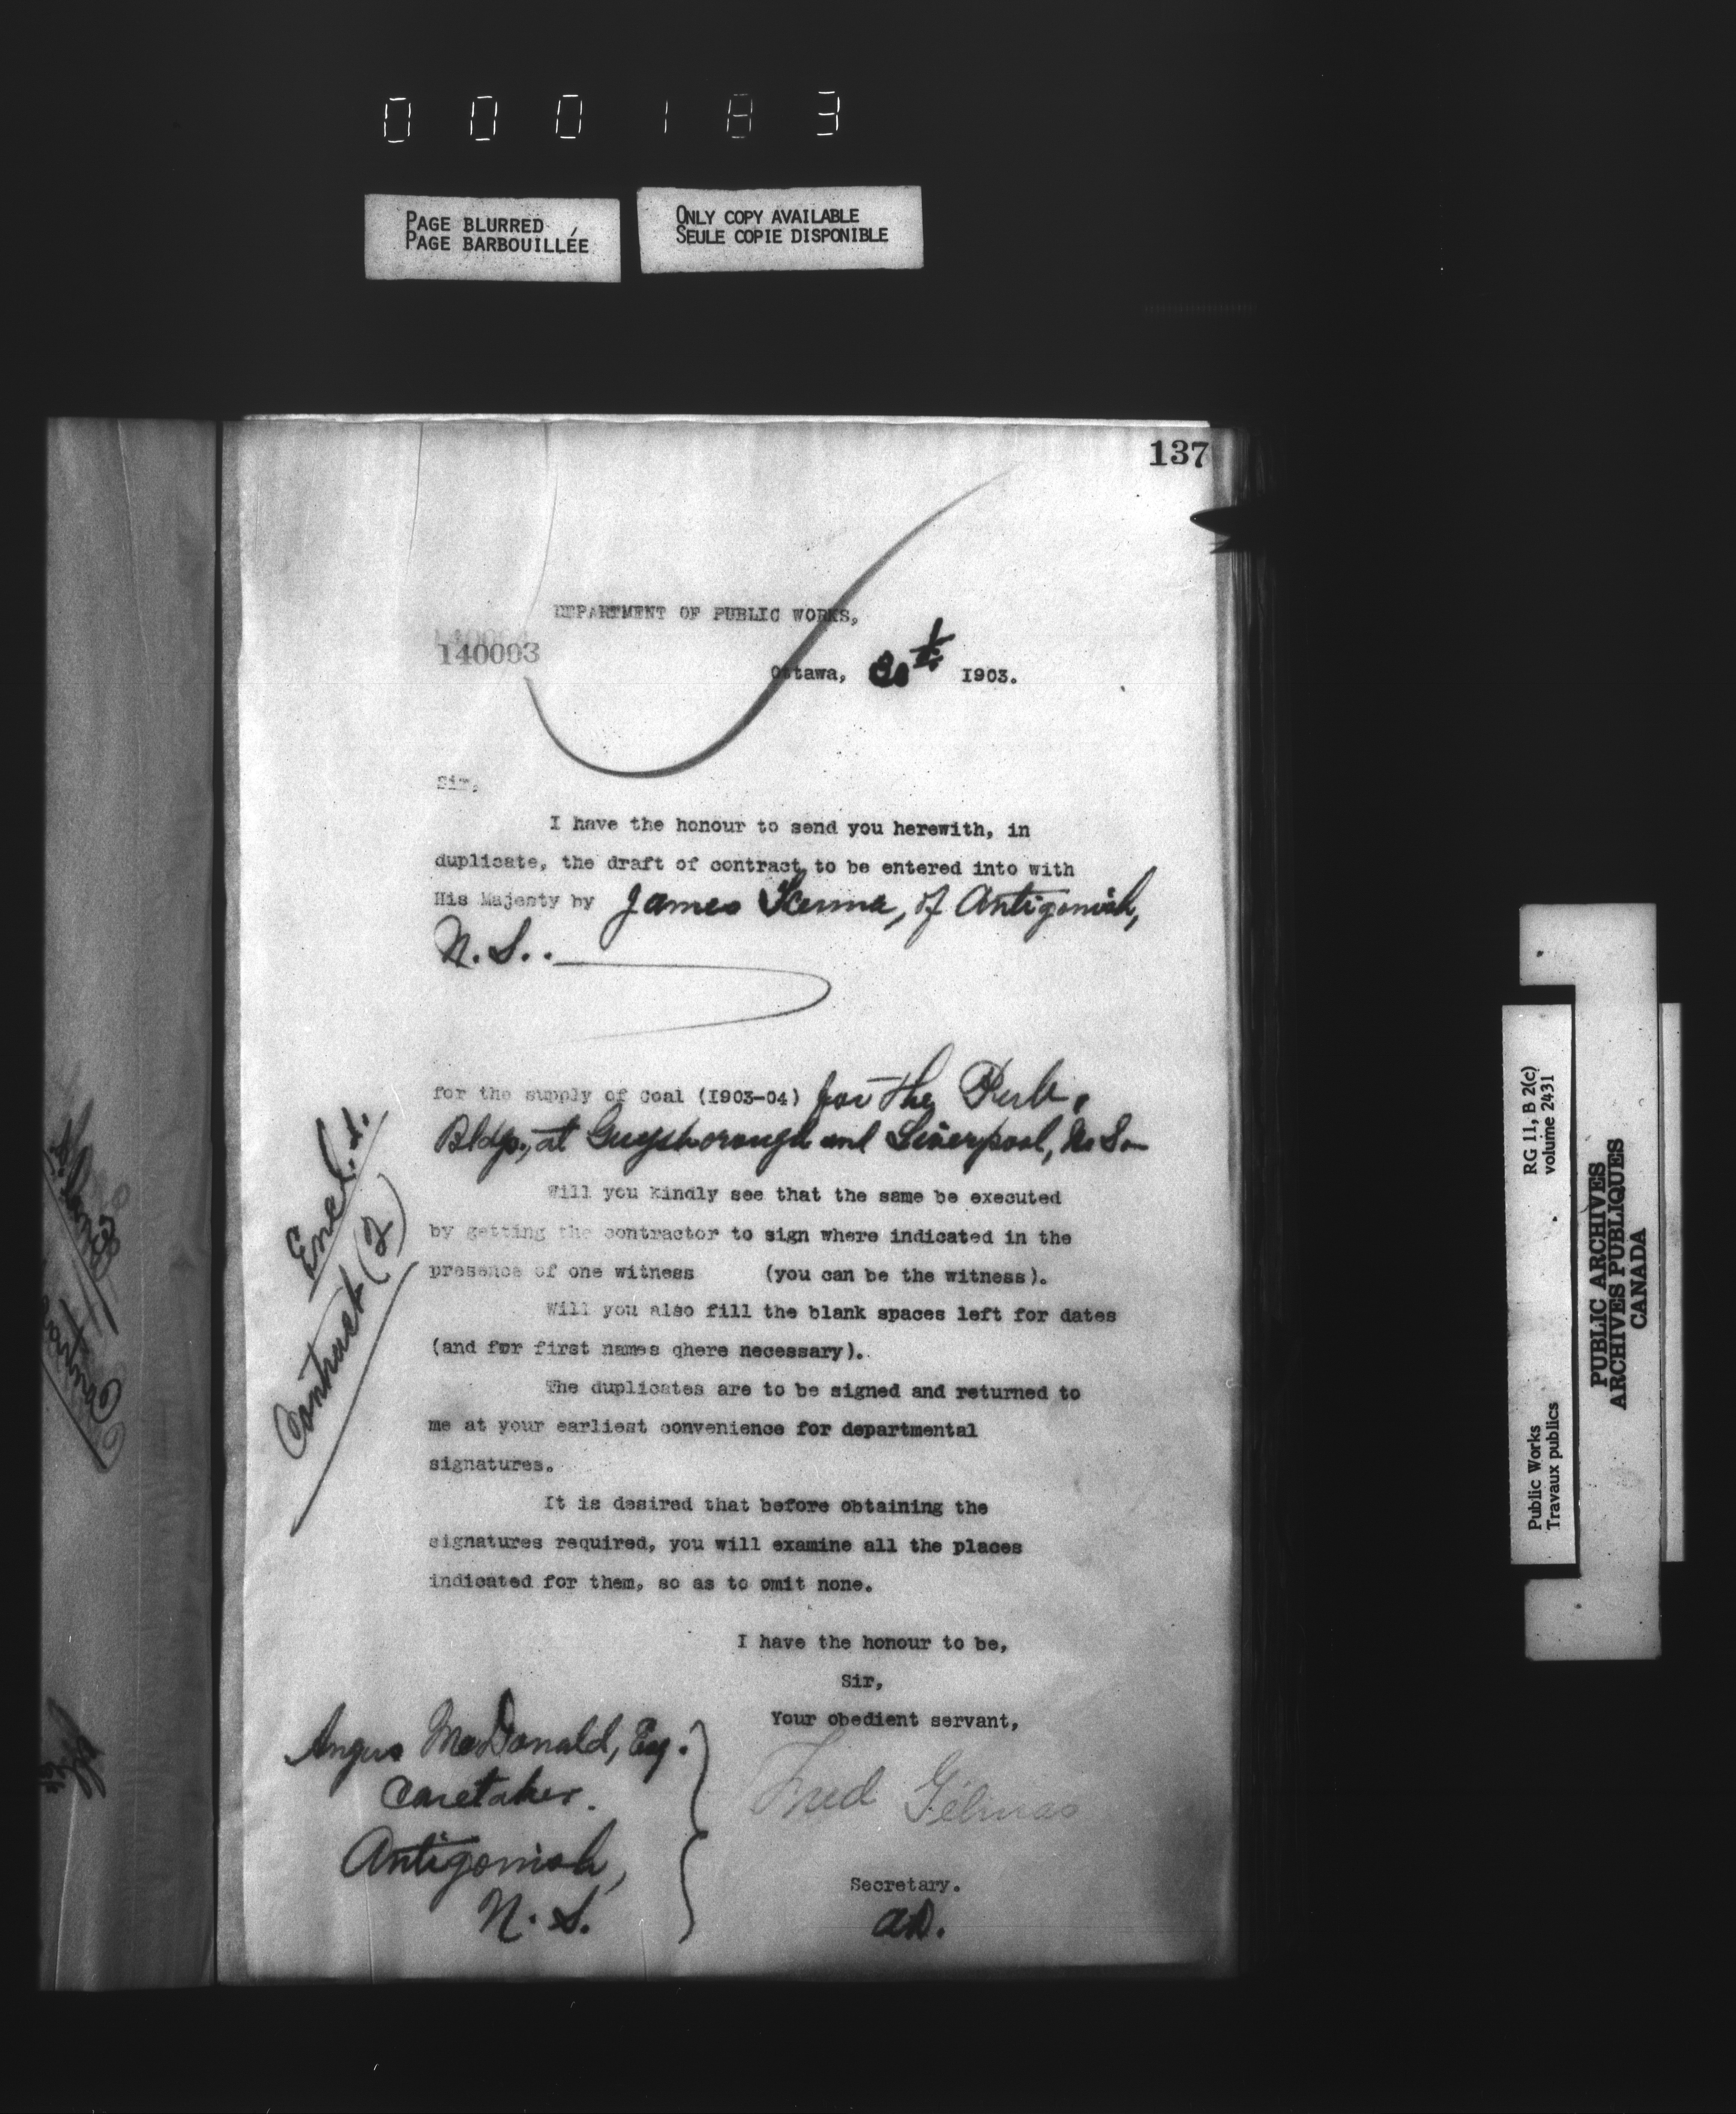 000183
PAGE BLURRED
PAGE BARBOUILLÉE
ONLY COPY AVAILABLE
SEULE COPIE DISPONIBLE
137
DEPARTMENT OF PUBLIC WORKS,
140003
Ottawa, 1903.
Sir,
I have the honour to send you herewith, in
duplicate, the draft of contract to be entered into with
His Majesty by James of Antigonish,
N. S..
for the supply of coal (1903-04) for the Pub.
Bldgs, at Guysborough and Liverpool, N.S.
Will you kindly see that the same be executed
by getting the contractor to sign where indicated in the
presence of one witness (you can be the witness).
Will you also fill the blank spaces left for dates
(and for first names qhere necessary).
The duplicates are to be signed and returned to
me at your earliest convenience for departmental
signatures.
It is desired that before obtaining the
signatures required, you will examine all the places
indicated for them, so as to omit none.
I have the honour to be,
Sir,
Your obedient servant,
Fred Gélinas
Secretary.
A.D.
Encl.s.
Contract (2)
Angus McDonald, Esq.
Caretaker.
Antigonish,
N. S.
RG 11, B 2(c)
volume 2431
Public Works
Travaux publics
PUBLIC ARCHIVES
ARCHIVES PUBLIQUES
CANADA